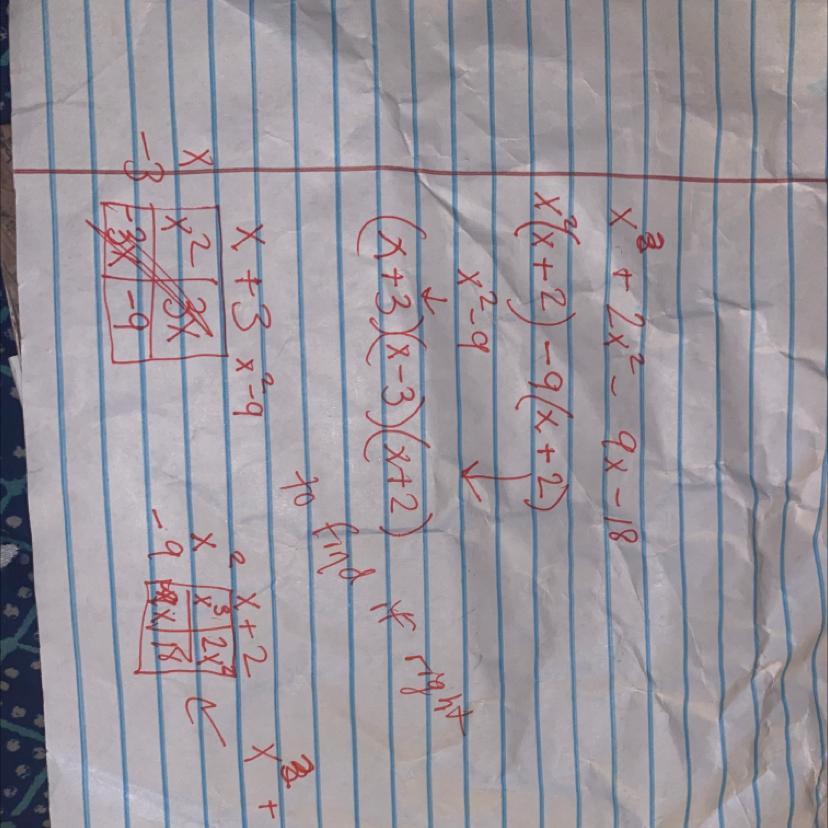 x³ + 2x² - 9x - 18
x²(x + 2) - 9(x + 2)
x² - 9
(x + 3)(x - 3)(x + 2)
to find if right
x + 3 x² - 9
x x² 3x
-3 -3x -9
x + 2 x³ +
x² x³ 2x²
-9 -9x 18